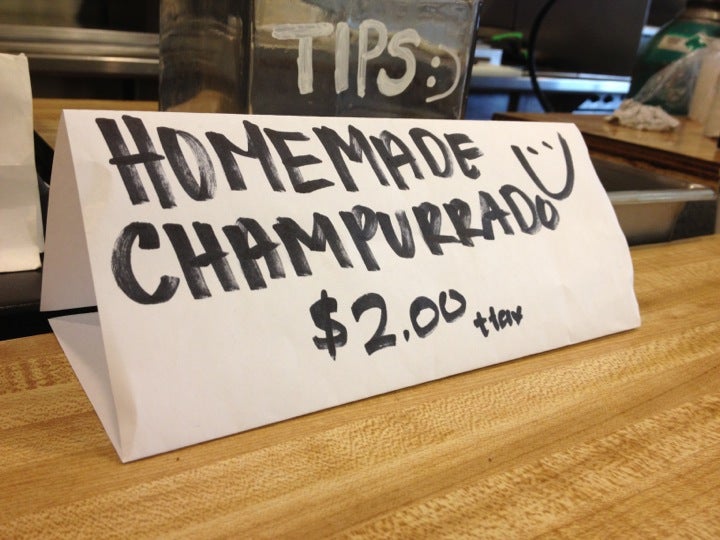 TIPS :)
HOMEMADE
CHAMPURRADO :)
$2.00 +tax